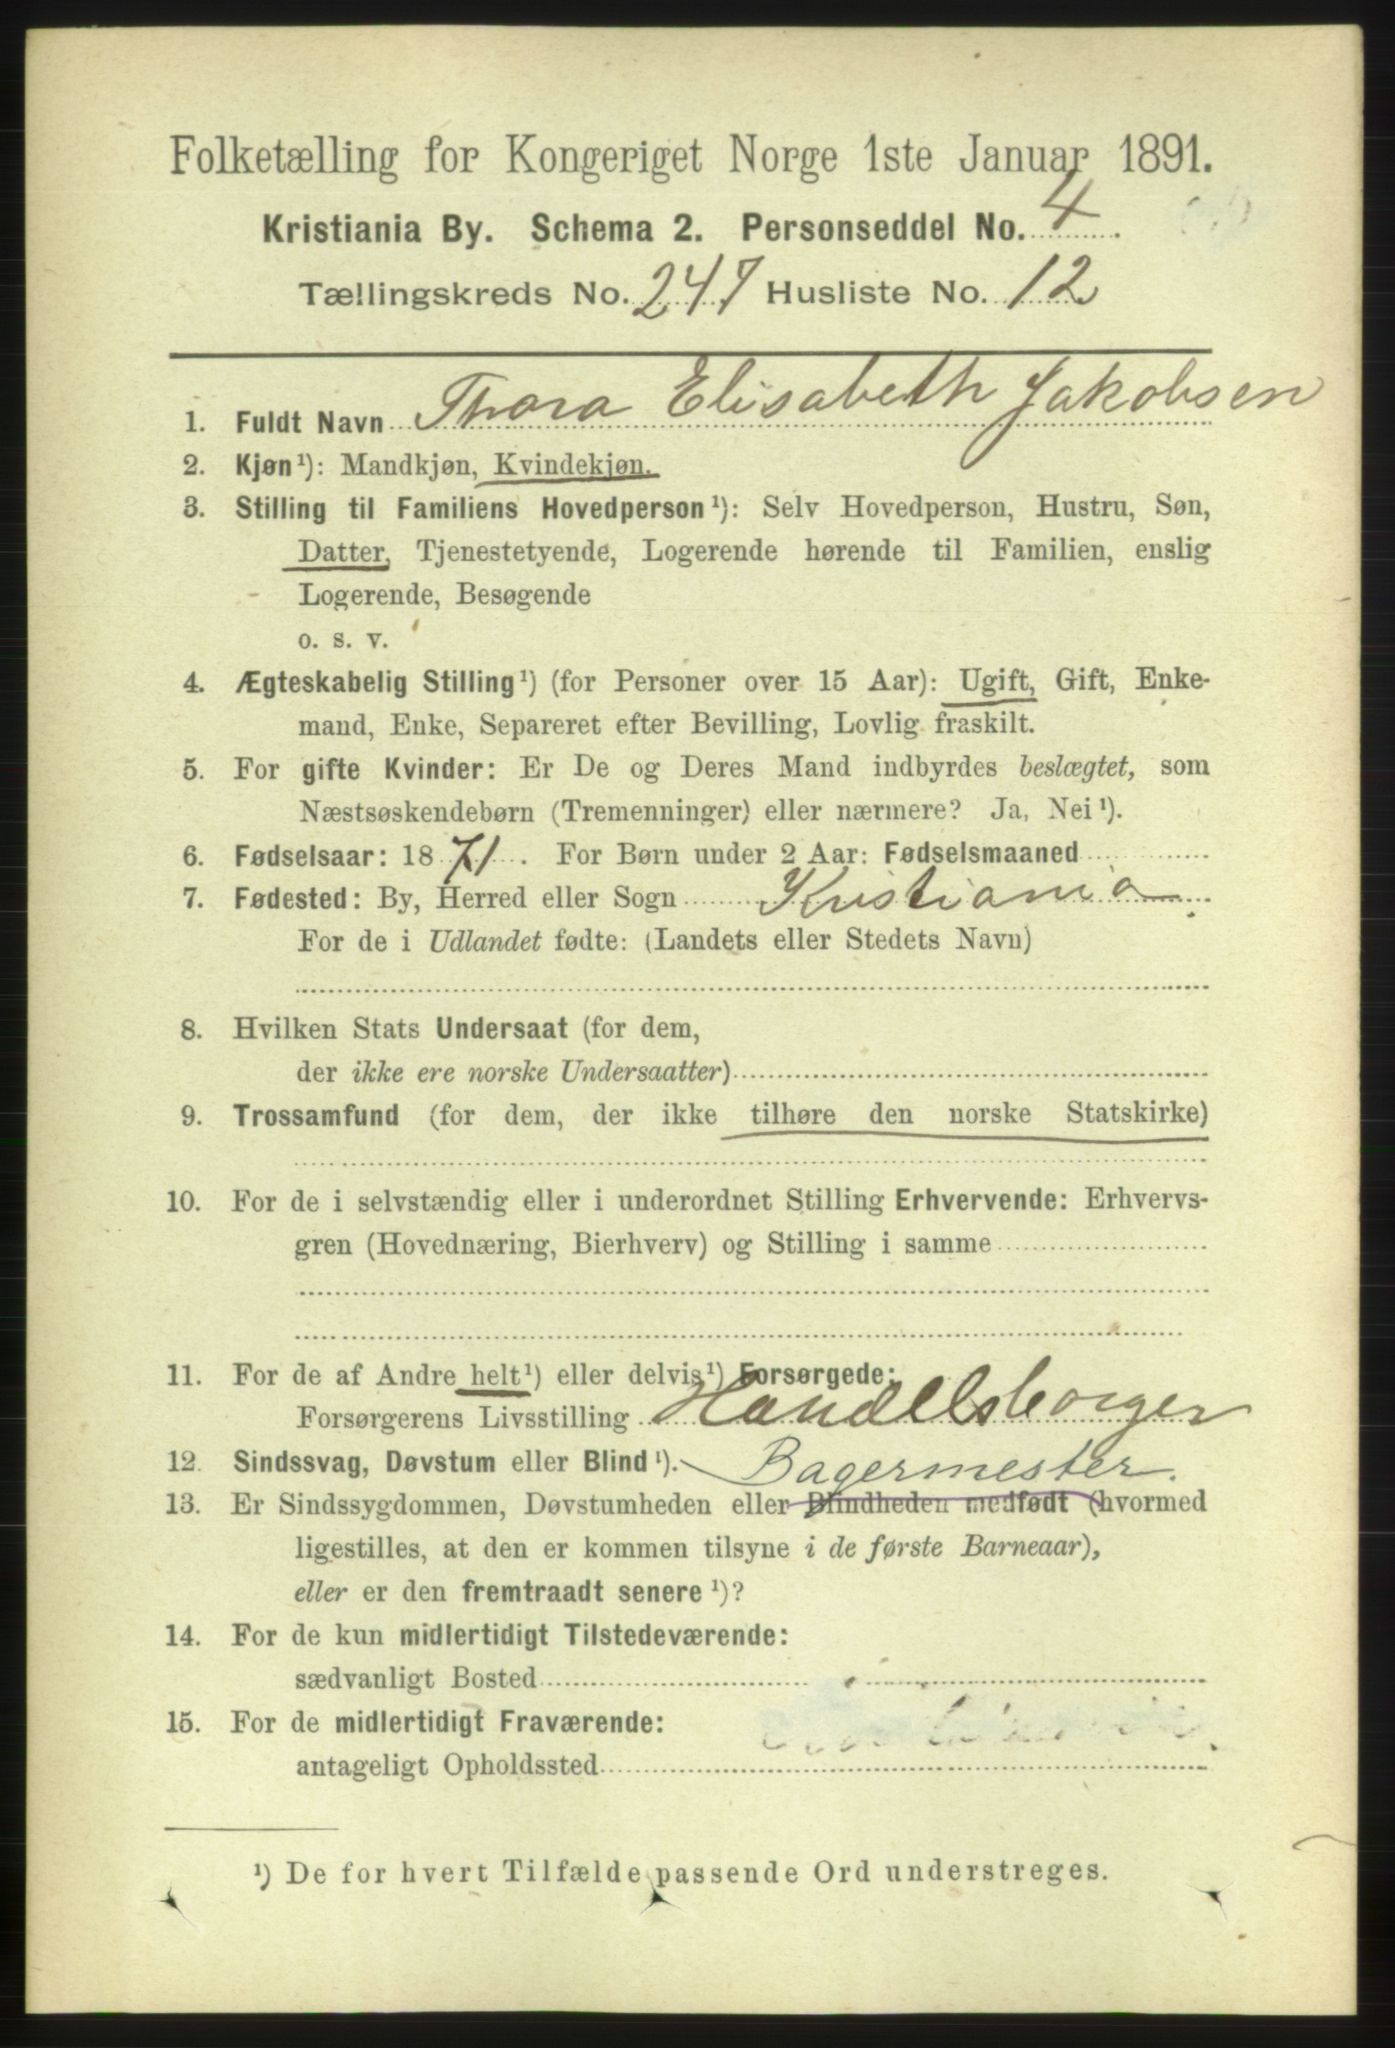 Folketælling for Kongeriget Norge 1ste Januar 1891.
Kristiania By. Schema 2. Personseddel No. 4.
Tællingskreds No. 247 Husliste No. 12
1. Fuldt Navn Thora Elisabeth Jakobsen
2. Kjøn¹): Mandkjøn, Kvindekjøn.
3. Stilling til Familiens Hovedperson¹): Selv Hovedperson, Hustru, Søn,
Datter, Tjenestetyende, Logerende hørende til Familien, enslig
Logerende, Besøgende
o. s. v.
4. Ægteskabelig Stilling¹) (for Personer over 15 Aar): Ugift, Gift, Enke-
mand, Enke, Separeret efter Bevilling, Lovlig fraskilt.
5. For gifte Kvinder: Er De og Deres Mand indbyrdes beslægtet, som
Næstsøskendebørn (Tremenninger) eller nærmere? Ja, Nei¹).
6. Fødselsaar: 1871. For Børn under 2 Aar: Fødselsmaaned
7. Fødested: By, Herred eller Sogn Kristiania.
For de i Udlandet fødte: (Landets eller Stedets Navn)
8. Hvilken Stats Undersaat (for dem,
der ikke ere norske Undersaatter)
9. Trossamfund (for dem, der ikke tilhøre den norske Statskirke)
10. For de i selvstændig eller i underordnet Stilling Erhvervende: Erhvervs-
gren (Hovednæring, Bierhverv) og Stilling i samme
11. For de af Andre helt¹) eller delvis¹) Forsørgede:
Forsørgerens Livsstilling Handelsborger
12. Sindssvag, Døvstum eller Blind¹). Bagermester.
13. Er Sindssygdommen, Døvstumheden eller Blindheden medfødt (hvormed
ligestilles, at den er kommen tilsyne i de første Barneaar),
eller er den fremtraadt senere¹)?
14. For de kun midlertidigt Tilstedeværende:
sædvanligt Bosted
15. For de midlertidigt Fraværende:
antageligt Opholdssted
¹) De for hvert Tilfælde passende Ord understreges.